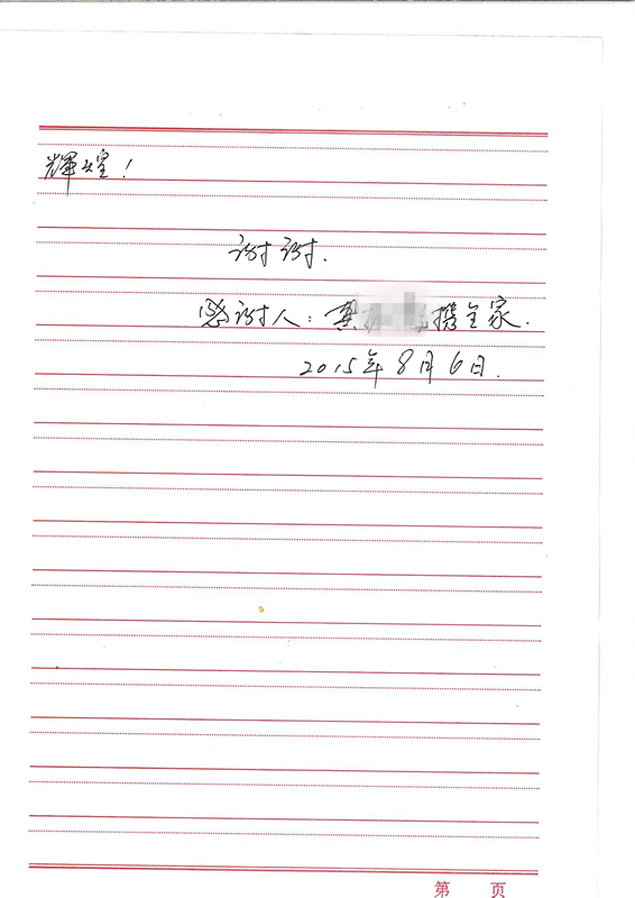 輝煌!
谢谢.
感谢人: 龚携全家.
2015年8月6日.
第 页